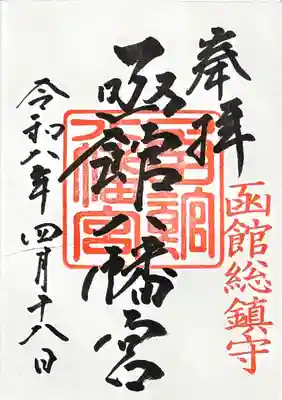 奉拝
函館総鎮守
函館八幡宮
令和八年四月十八日